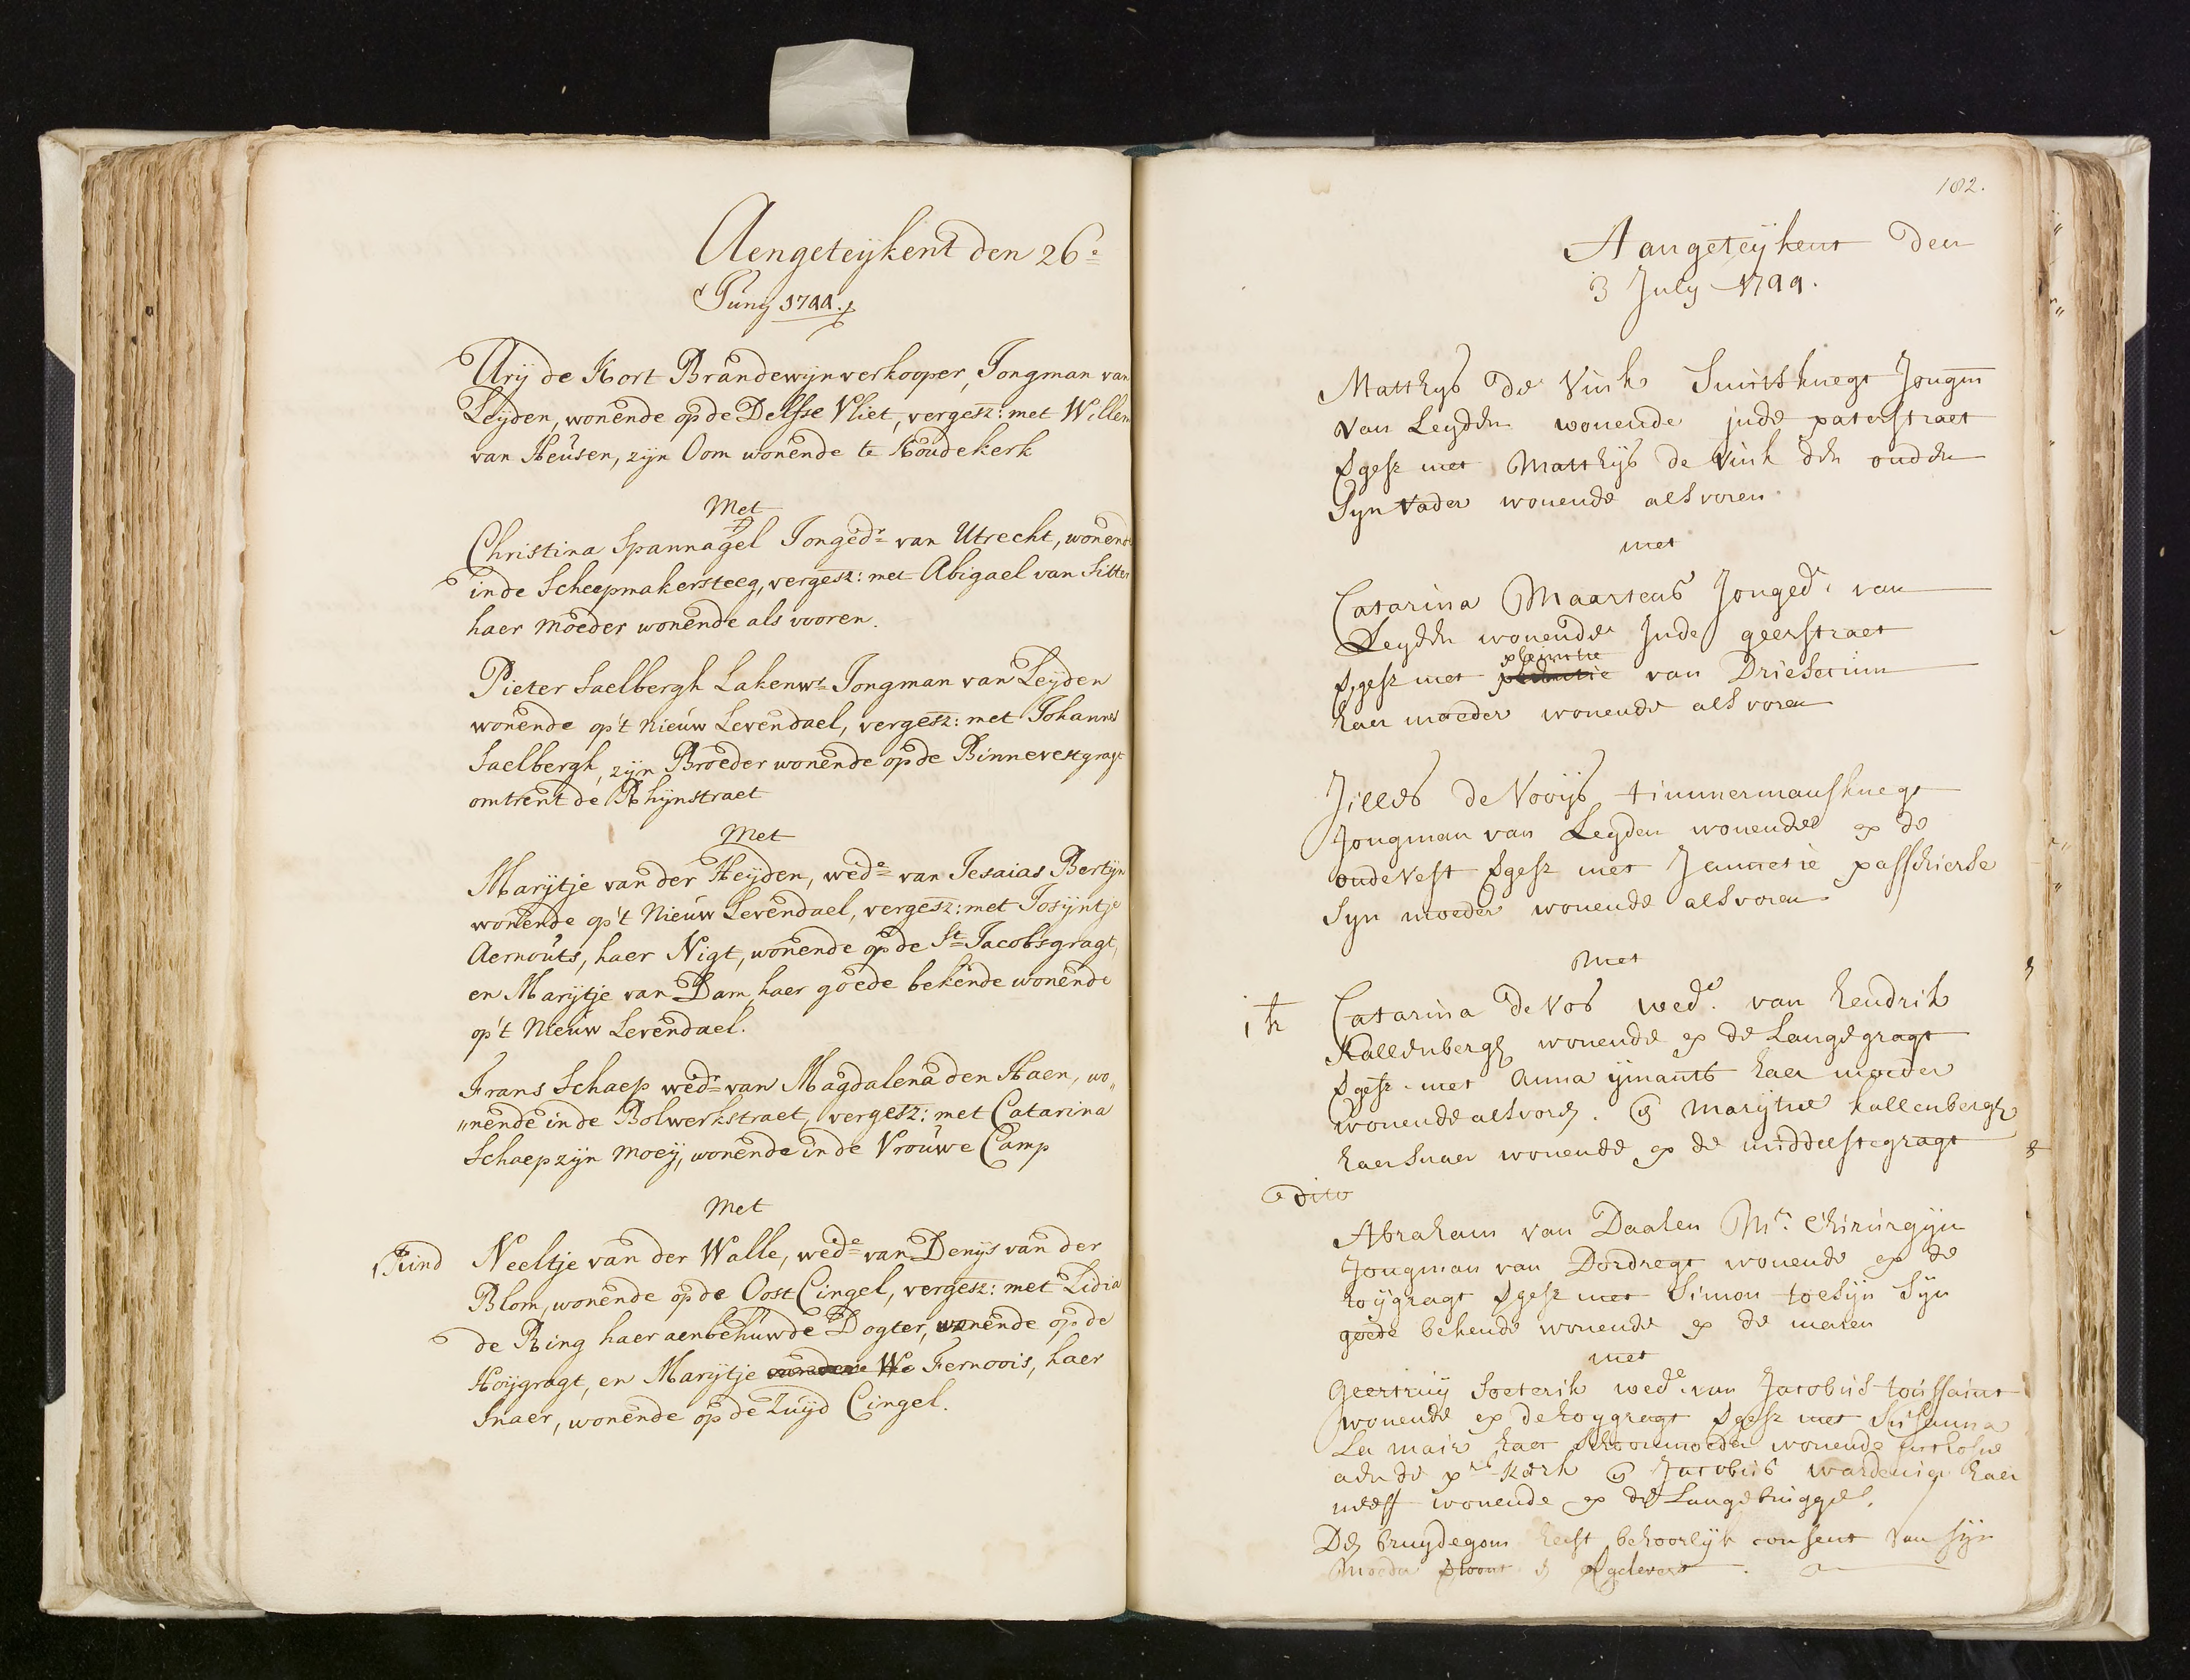 Aengeteijkent den 26e
Juny 1744.
Arij de Kort Brandewijnverkooper, Jongman van
Leyden, wonende op de Delfse Vliet, vergesz: met Willem
van Heusen, zijn Oom wonende te Koudekerk
Met
Christina Spannagel Jonged: van Utrecht, wonende
in de Scheepmakersteeg, vergesz: met Abigael van Sitter
haer moeder wonende als vooren.
Pieter Saelbergh Lakenwr Jongman van Leyden
wonende op't Nieuw Levendael, vergesz: met Johannes
Saelbergh, zijn Broeder wonende op de Binnevestgragt
omtrent de Rhijnstraet
Met
Marijtje van der Heijden, wede van Jesaias Bertijn
wonende op't Nieuw Levendael, vergesz: met Josijntje
Aernouts, haer Nigt, wonende op de St Jacobsgragt,
en Marijtje van Dam, haer goede bekende wonende
op't Nieuw Levendael.
Frans Schaep wedr van Magdalena den Haen, wo„
„nende in de Bolwerkstraet, vergesz: met Catarina
Schaep zijn Moeij, wonende in de Vrouwe Camp
Met
1 Kind Neeltje van der Walle, wede van Denys van der
Blom, wonende op de Oost Cingel, vergesz: met Lidia
de Ring haer aenbehuwde Dogter, wonende op de
Hoijgragt, en Marijtje Fernoois, haer
Snaer, wonende op de Zuijd Cingel.
182.
Aangeteijkent den
3 July 1744.
Matthys de Vink Smitsknegt Jongm
van Leyden wonende inde paterstraet
vgesz met Matthijs de Vink den ouden
Syn vader wonende als voren
met
Catarina Maartens Jonged: van
Leyden wonende Inde geerstraet
pleuntie
vgesz met van Driesecum
haer moeder wonende als voren
Jilles de Nooijs timmermansknegt
Jongman van Leyden wonende op de
oudevest vgesz met Jannetie passchierse
Syn moeder wonende als voren
Met
1 k Catarina de Vos wede van hendrik
Kallenbergh wonende op de Langegragt
vgesz met Anna ymants haer moeder
wonende als voren. en Marijtie kallenbergh
haer Snaer wonende op de middelstegragt
dito
Abraham van Daalen Mr. Chirurgijn
Jongman van Dordregt wonende op de
hoijgragt vgesz met Simon toesijn Syn
goede bekende wonende op de maren
met
Geertruij Soeterik wede van Jacobus toussaint
wonende op de hoygragt vgesz met Susanna
La mair haer Schoonmoeder wonende
aen de prs kerk en Jacobus wardenier haer
neeff wonende op de Langebrugge.
Den bruydegom heeft behoorlijk consent van syn
moeder